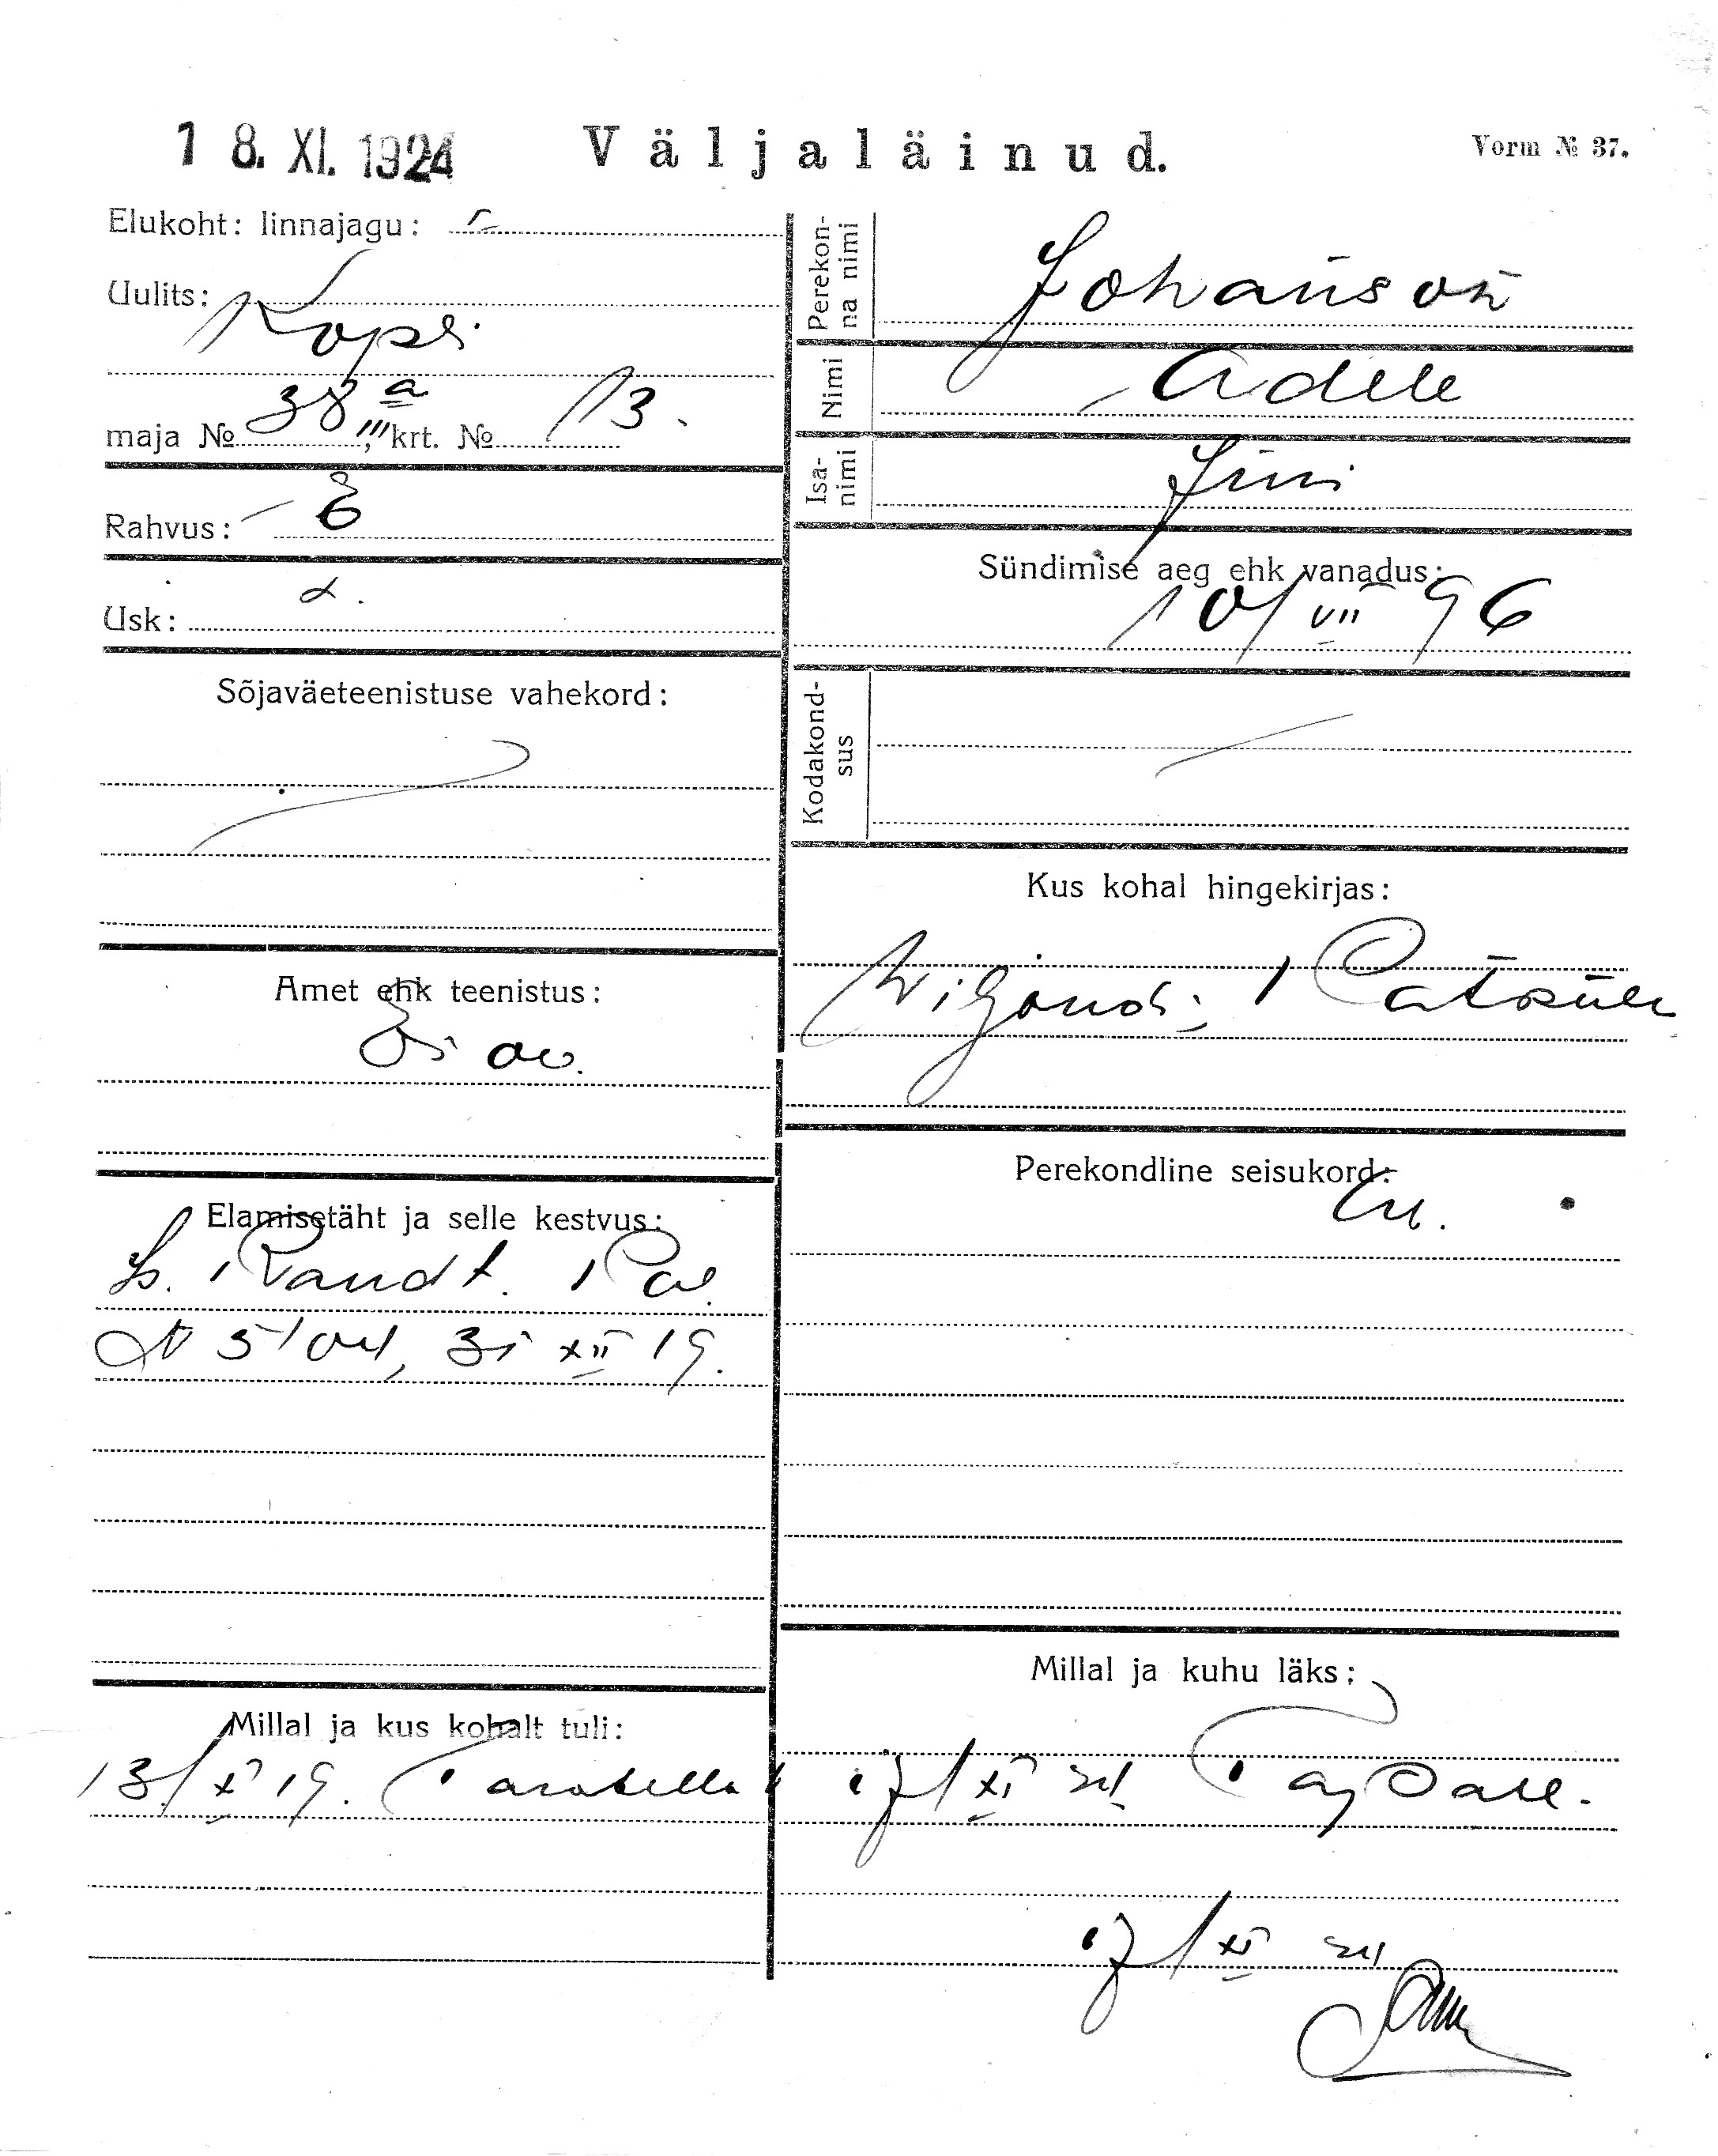 18. XI. 1924
Väljaläinud.
Vorm № 37.
Elukoht: linnajagu:
Uulits: Kopli
maja № 38 a, krt. № 13.
Rahvus: E
Usk: L.
Sõjaväeteenistuse vahekord:
Amet ehk teenistus:
Elamisetäht ja selle kestvus:
Randt.
31 XII 19.
Millal ja kus kohalt tuli:
13/XI 19.
Perekonna nimi
Johanson
Nimi
Adele
Isanimi
Jüri
Sündimise aeg ehk vanadus:
10/VII 96
Kodakondsus
Kus kohal hingekirjas:
Wigandi
Perekondline seisukord:
Millal ja kuhu läks:
17/XI 24
17/XI 24